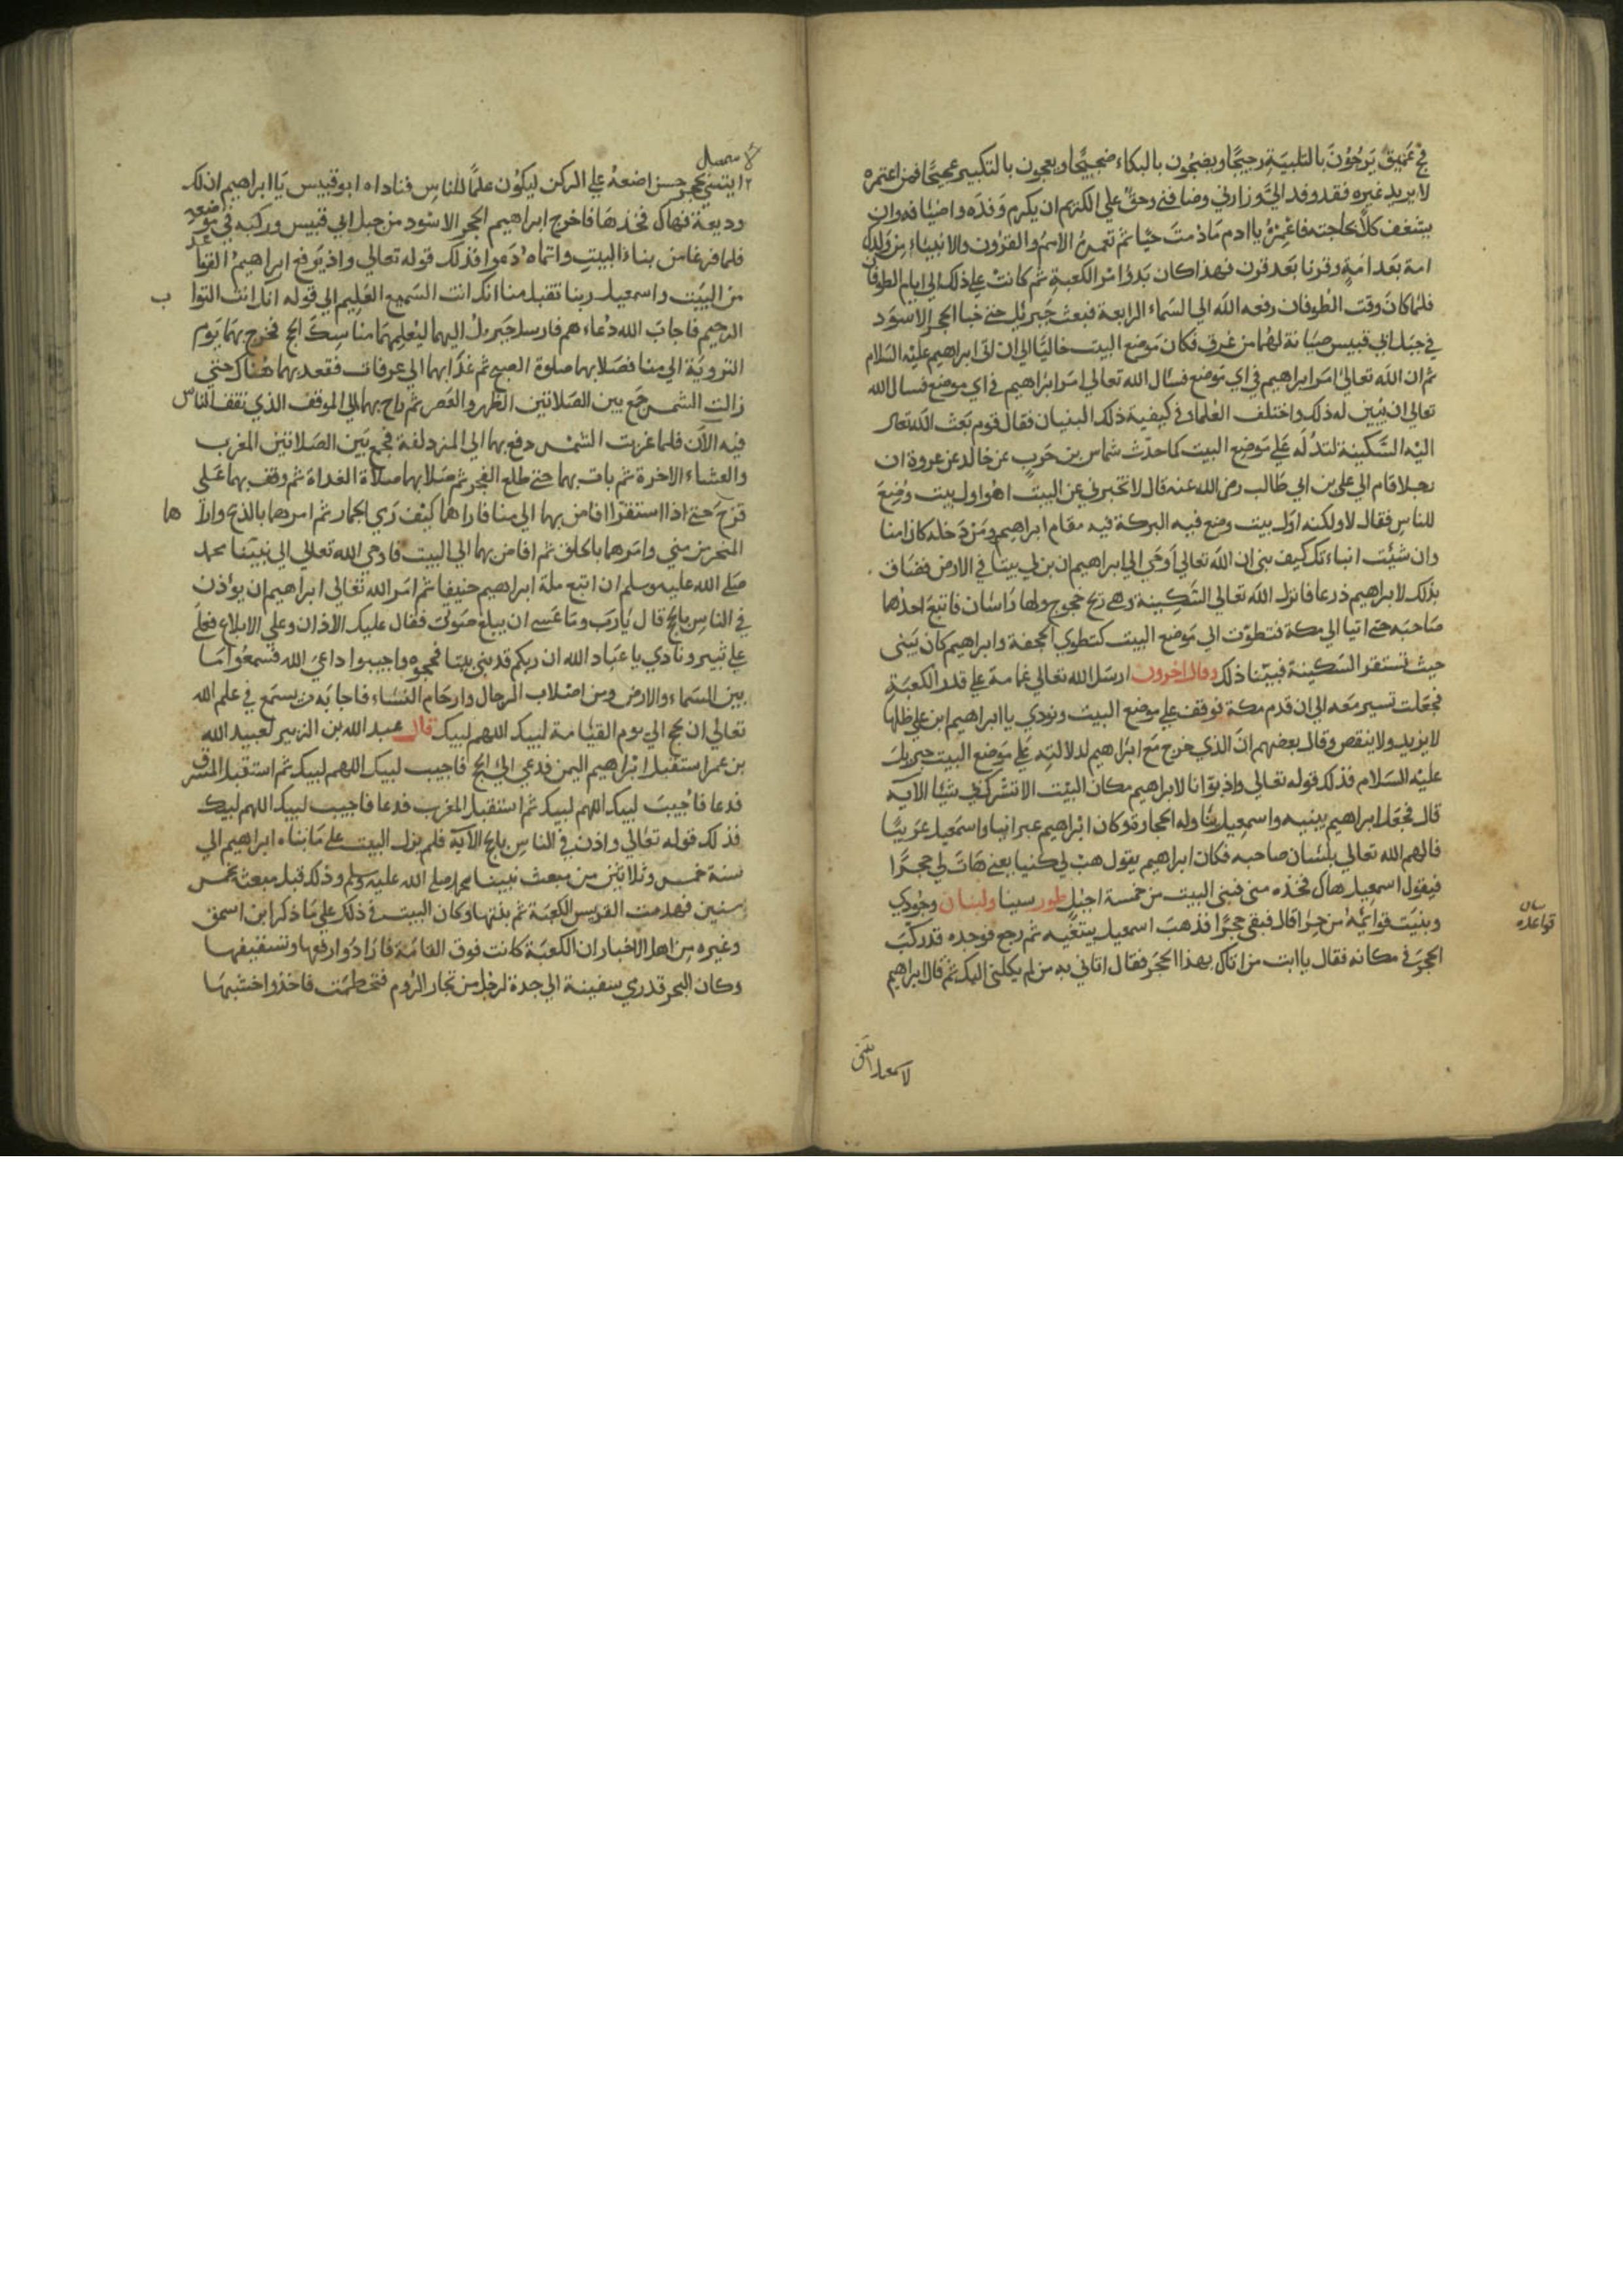 فج عميق يرجون بالتلبية رجيجا ويضجون بالبكاء ضجيجا ويعجون بالتكبير عجيجا فمن اعتمره
لا يريد غيره فقد وفد الي وزارني وضافني وحق علي الكريم ان يكرم وفده واضيافه وان
يسعف كلا بحاجته فاعمره يا ادم ما دمت حيا ثم تعمره الامم والقرون والانبياء من ولدك
امة بعد امة وقرنا بعد قرن فهذا كان بدؤ امر الكعبة ثم كانت علي ذلك الي ايام الطوفان
فلما كان وقت الطوفان رفعه الله الي السماء الرابعة فبعث جبريل حتي خبا الحجر الاسود
في جبل ابي قبيس صيانة له من غرق فكان موضع البيت خاليا الي ان اتي ابراهيم عليه السلام
ثم ان الله تعالي امر ابراهيم في اي موضع فسال الله تعالي امر ابراهيم في اي موضع فسال الله
تعالي ان يبين له ذلك واختلف العلماء في كيفية ذلك البنيان فقال قوم بعث الله تعالي
اليه السكينة لتدله علي موضع البيت كما حدث شماس بن حرب عن خالد عن عروة ان
رجلا قام الي علي بن ابي طالب رضي الله عنه قال لا تخبرني عن البيت اهو اول بيت وضع
للناس فقال لا ولكنه اول بيت وضع فيه البركة فيه مقام ابراهيم ومن دخله كان امنا
وان شئت انباءتك كيف بني ان الله تعالي اوحي الي ابراهيم ان بن لي بيتا في الارض فضاف
بذلك لابراهيم ذرعا فانزل الله تعالي السكينة وهي ريح خجوج ولها راسان فاتبع احدهما
صاحبه حتي اتيا الي مكة فتطوت الي موضع البيت كتطوي الحجفة وابراهيم كان يبني
حيث تستقر السكينة فبينا ذلك وقال اخرون ارسل الله تعالي غمامة علي قدر الكعبة
فجعلت تسير معه الي ان قدم مكة فوقف علي موضع البيت ونودي يا ابراهيم ابن علي ظلها
لا يزيد ولا ينقص وقال بعضهم ان الذي خرج مع ابراهيم لدلالته علي موضع البيت جبريل
عليه السلام فذلك قوله تعالي واذ بوانا لابراهيم مكان البيت الا تشرك بي شيئا الآيه
قال فجعل ابراهيم يبنيه واسمعيل يناوله الحجارة وكان ابراهيم عبرانيا واسمعيل عربيا
فالهم الله تعالي بلسان صاحبه فكان ابراهيم يقول هب لي كنيا يعني هات لي حجرا
فيقول اسمعيل هاك فخذه مني فبني البيت من خمسة اجبل طور سينا ولبنان وجودي
وبنيت قوائمه من حرا قال فبقي حجرا فذهب اسمعيل يبتغيه ثم رجع فوجده قد ركب
الحجر في مكانه فقال يا ابت من اتاك بهذا الحجر فقال اتاني به من لم يكلني اليك ثم قال ابراهيم
قواعده
ايتني بحجر حسن اضعه علي الركن ليكون علما للناس فناداه ابو قبيس يا ابراهيم ان لك
وديعة فهاك فخذها فاخرج ابراهيم الحجر الاسود من جبل ابي قبيس وركبه في موضعه
فلما فرغا من بناء البيت واتماه دعوا فذلك قوله تعالي واذ يرفع ابراهيم القواعد
من البيت واسمعيل ربنا تقبل منا انك انت السميع العليم الي قوله انك انت التوا ب
الرحيم فاجاب الله دعاءهم فارسل جبريل اليهما ليعلمهما مناسك الحج فخرج بهما يوم
التروية الي منا فصلا بهما صلوة الصبح ثم غدا بهما الي عرفات فقعد بهما هناك حتي
زالت الشمس جمع بين الصلاتين الظهر والعصر ثم راح بهما الي الموقف الذي تقف الناس
فيه الآن فلما غربت الشمس دفع بهما الي المزدلفة فجمع بين الصلاتين المغرب
والعشاء الاخرة ثم بات بهما حتي طلع الفجر ثم صلا بهما صلاة الغداة ثم وقف بهما علي
قزح حتي اذا استقرا افاض بهما الي منا فاراهما كيف رمي الجمار ثم امرهما بالذبح وارا ها
المنحر من مني وامرهما بالحلق ثم افاض بهما الي البيت فاوحي الله تعالي الي نبينا محمد
صلي الله عليه وسلم ان اتبع ملة ابراهيم حنيفا ثم امر الله تعالي ابراهيم ان يؤذن
في الناس بالحج قال يا رب وما عسي ان يبلغ صوتي فقال عليك الاذان وعلي الابلاغ فعلي
علي ثبير ونادي يا عباد الله ان ربكم قد بني بيتا فحجوه واجيبوا داعي الله فسمعوا ما
بين السماء والارض ومن اصلاب الرجال وارحام النساء فاجابه من يسمع في علم الله
تعالي ان يحج الي يوم القيامة لبيك اللهم لبيك قال عبد الله بن الزبير لعبيد الله
بن عمر استقبل ابراهيم اليمن فدعي الي الحج فاجيب لبيك اللهم لبيك ثم استقبل المشرق
فدعا فاجيب لبيك اللهم لبيك ثم استقبل المغرب فدعا فاجيب لبيك اللهم لبيك
فذلك قوله تعالي واذن في الناس بالحج الآية فلم يزل البيت علي ما بناه ابراهيم الي
سنة خمس وثلاثين من مبعث نبينا محمد صلي الله عليه وسلم وذلك قبل مبعثه بخمس
سنين فهدمت القريس الكعبة ثم بنتها وكان البيت في ذلك علي ما ذكر ابن اسحق
وغيره من اهل الاخبار ان الكعبة كانت فوق القامة فارادوا رفعها وتسقيفها
وكان البحر قد رمي سفينة الي جدة لرجل من تجار الروم فتحطمت فاخذوا خشبها